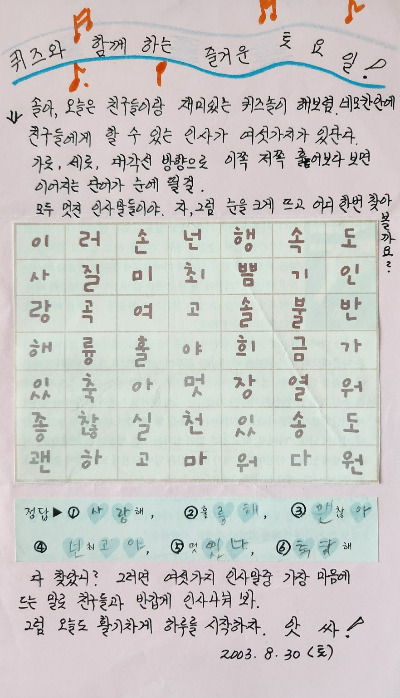 퀴즈와 함께 하는 즐거운 토요일!
솔아, 오늘은 친구들이랑 재미있는 퀴즈놀이 해보렴. 네모칸안에
친구들에게 할 수 있는 인사가 여섯가지가 있단다.
가로, 세로, 대각선 방향으로 이쪽 저쪽 훑어보다 보면
이어지는 단어가 눈에 띌걸.
모두 멋진 인사말들이야. 자, 그럼 눈을 크게 뜨고 어디 한번 찾아
볼까요?
이 러 손 넌 행 속 도
사 질 미 최 쁨 기 인
랑 곡 여 고 솔 불 반
해 륭 훌 야 희 금 가
있 축 아 멋 장 열 워
좋 찮 실 천 있 송 도
괜 하 고 마 워 다 원
정답 ▶ ① 사랑해, ② 훌륭해, ③ 괜찮아
④ 넌최고야, ⑤ 멋있다, ⑥ 축하해
다 찾았니? 그러면 여섯가지 인사말중 가장 마음에
드는 말로 친구들과 반갑게 인사나눠 봐.
그럼 오늘도 활기차게 하루를 시작하자. 앗 싸!
2003. 8. 30 (토)